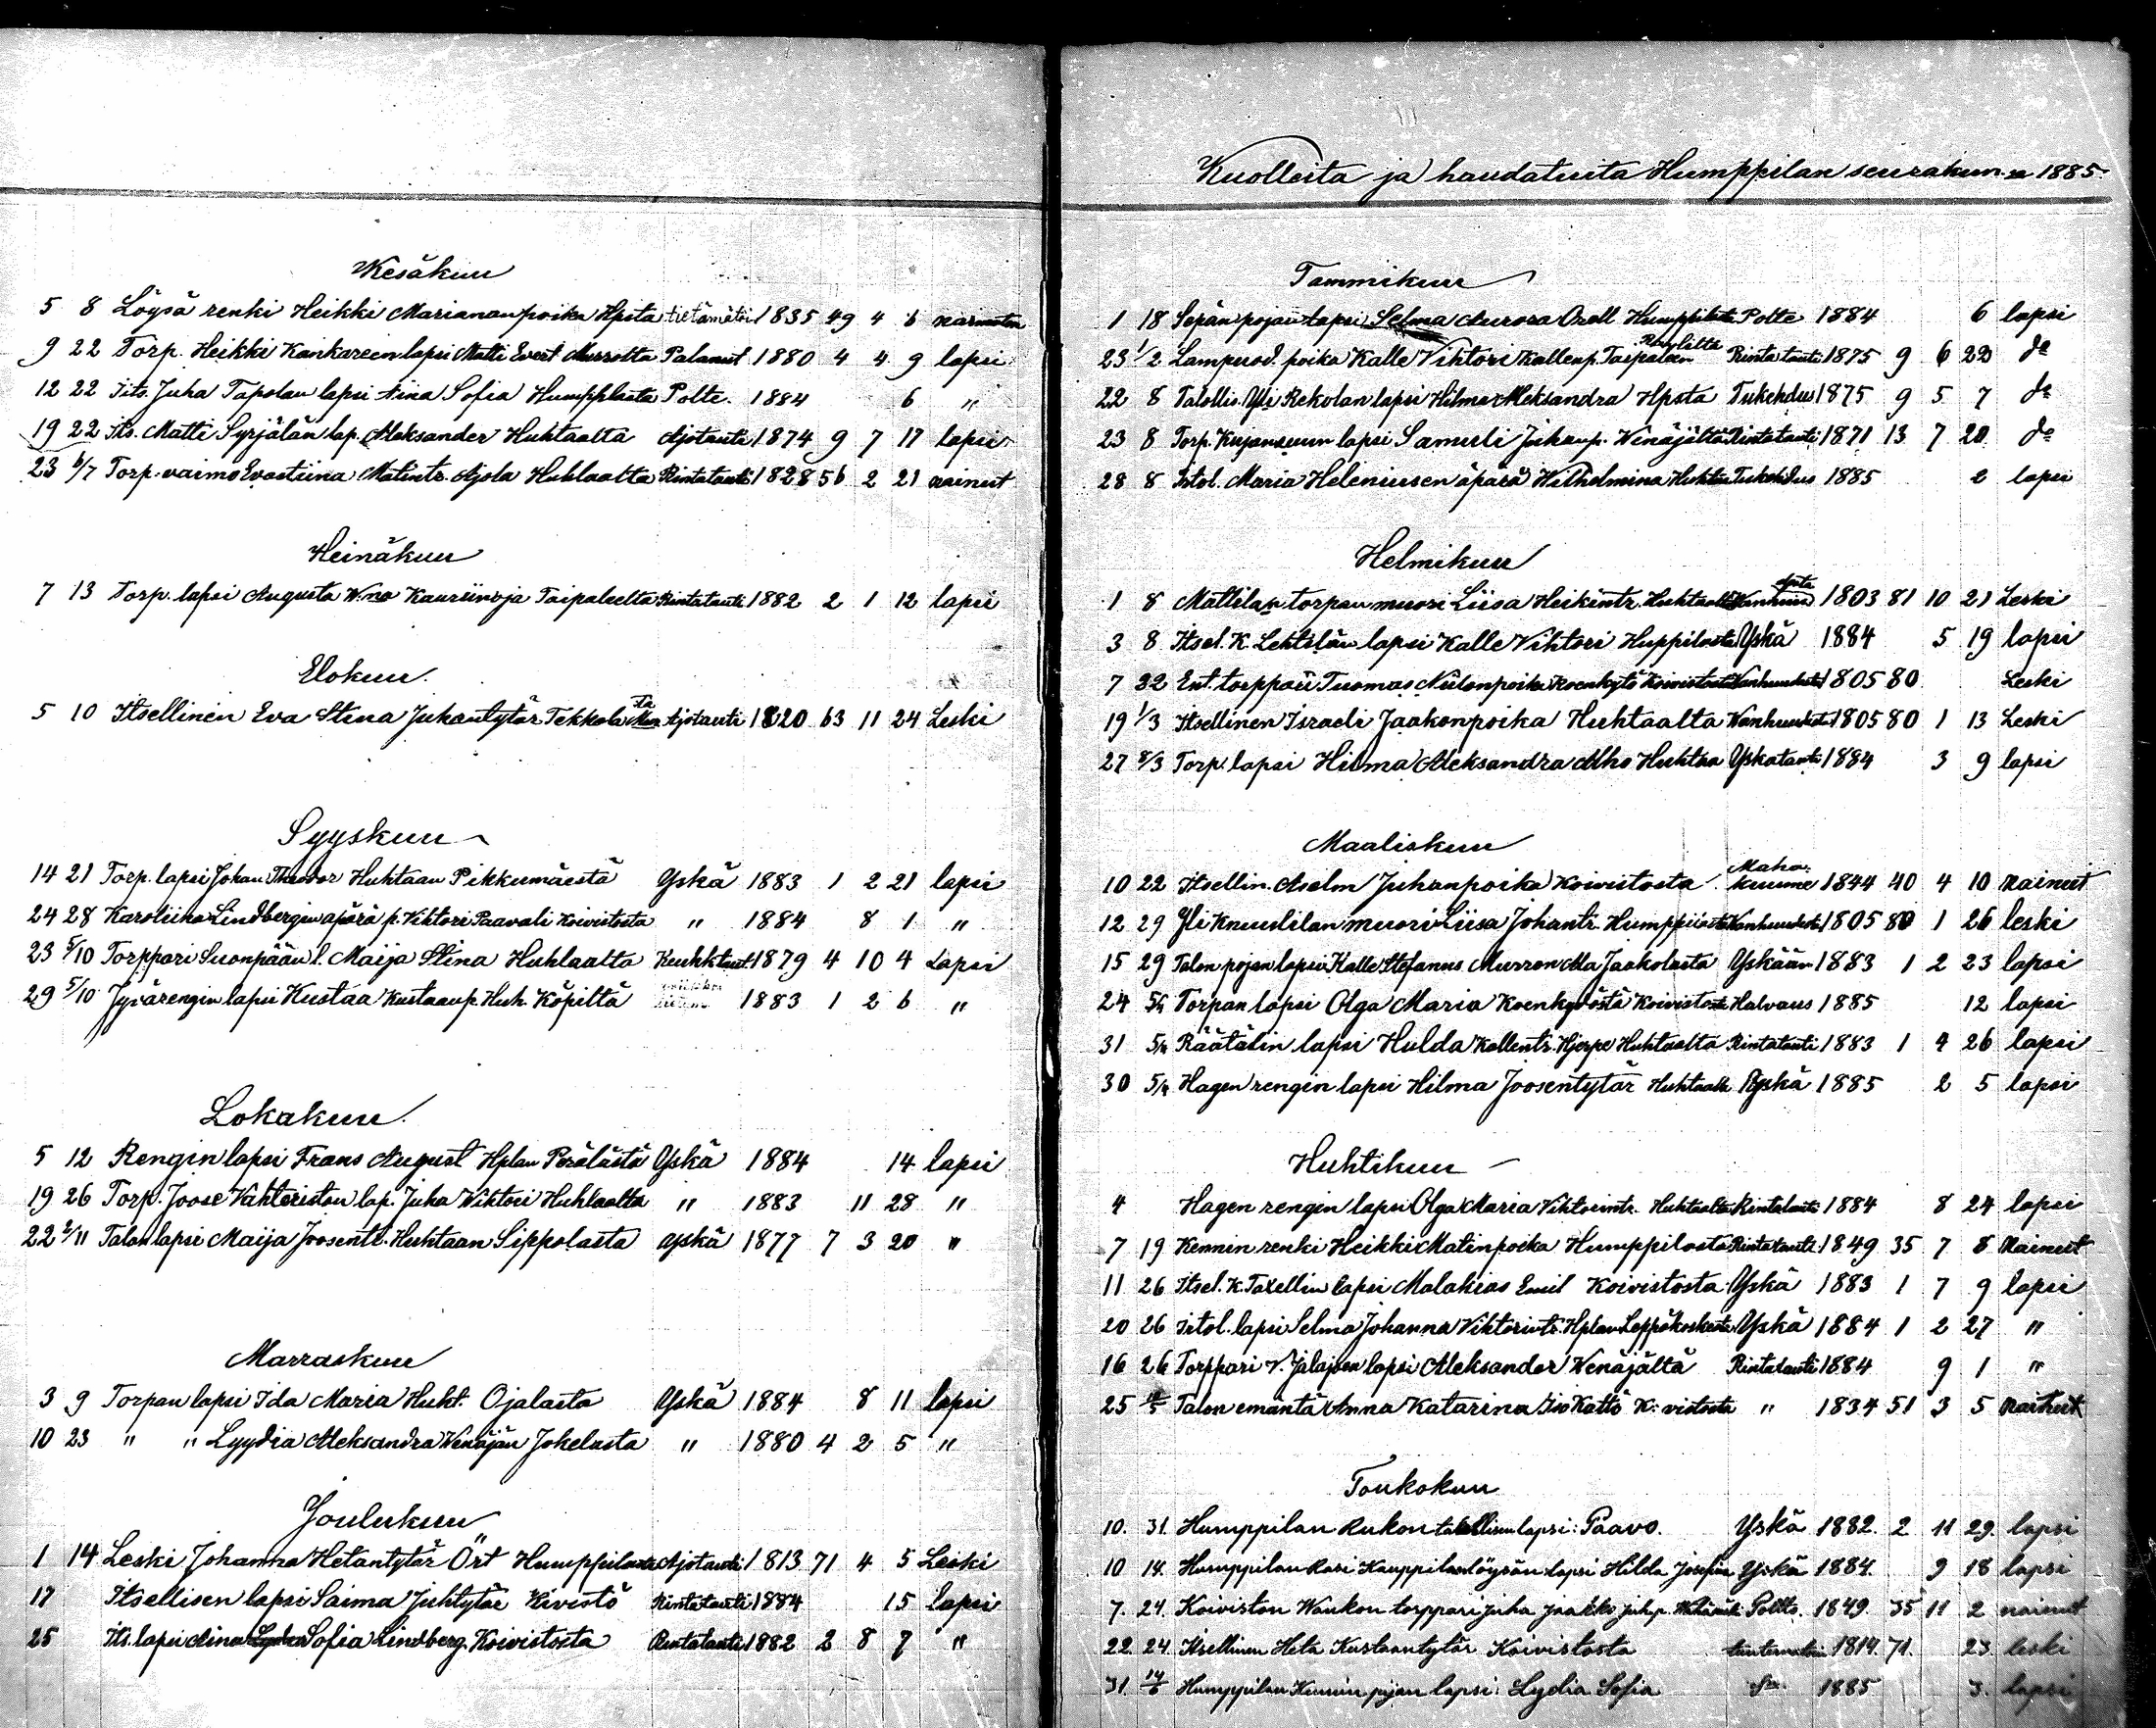 Kesäkuu
5 8 Löysä renki Heikki Mariananpoika Hpsta tietämätöin 1835 49 4 6 naimaton
9 22 Torp. Heikki Kankareen lapsi Matti Evert Murrolta Palanut 1880 4 4 9 lapsi
12 22 Its. Juha Tapolan lapsi Aina Sofia Humpplasta Polte. 1884 6 "
19 22 Its. Matti Syrjälän lap. Aleksander Huhtaalta Ajotauti 1874 9 7 17 lapsi
23 6/7 Torp. vaimo Evastiina Matintr. Ajola Huhtaalta Rintatauti 1828 56 2 21 nainut
Heinäkuu
7 13 Torp. lapsi Augusta W.na Kauriinoja Taipaleelta Rintatauti 1882 2 1 12 lapsi
Elokuu.
5 10 Itsellinen Eva Stina Jukantytär Tekkala Ajotauti 1820 63 11 24 Leski
Syyskuu
14 21 Torp. lapsi Johan Theodor Huhtaan Pikkumäestä Yskä 1883 1 2 21 lapsi
24 28 Karoliina Lindbergin äpärä p. Vihtori Paavali Koivistosta " 1884 8 1 "
23 5/10 Torppari Suonpään l. Maija Stina Huhtaalta Keuhktauti 1879 4 10 4 Lapsi
29 5/10 Jyvärengin lapsi Kustaa Kustaanp. Huh. Köpiltä 1883 1 2 6 "
Lokakuu.
5 12 Rengin lapsi Frans August Hplan Perälästä Yskä 1884 14 lapsi
19 26 Torp. Joose Vahteriston lap. Juha Wihtori Huhtaalta " 1883 11 28 "
22 2/11 Talon lapsi Maija Joosentr. Huhtaan Sippolasta yskä 1877 7 3 20 "
Marraskuu
3 9 Torpan lapsi Ida Maria Huht. Ojalasta Yskä 1884 8 11 lapsi
10 23 " " Lyydia Aleksandra Wenäjän Jokelasta " 1880 4 2 5 "
Joulukuu
1 14 Leski Johanna Hetantytär Ört Humppilasta Ajotauti 1813 71 4 5 Leski
17 Itsellisen lapsi Saima Juhtytär Kivistö Rintatauti 1884 15 lapsi
25 Its. lapsi Aina Sofia Lindberg Koivistosta Rintatauti 1882 2 8 7 "
Kuolleita ja haudatuita Humppilan seurakun:sa 1885.
Tammikuu
1 18 Sepän pojan lapsi Selma Aurora Orell Humppilasta Polte 1884 6 lapsi
23 1/2 Lampuod. poika Kalle Vihtori Kallenp. Taipaleen Rintatauti 1875 9 6 22 do
22 8 Talollis. Yli Rekolan lapsi Hilma Aleksandra Hpsta Tukehdus 1875 9 5 7 do
23 8 Torp. Kujansuun lapsi Samuli Juhanp. Wenäjältä Rintatauti 1871 13 7 20 do
28 8 Irtol. Maria Heleniusen äpärä Wilhelmina Huhtaa Tukehdus 1885 2 lapsi
Helmikuu
1 8 Mattilan torpan muori Liisa Heikintr. Huhtaalta Wanhuus 1803 81 10 21 Leski
3 8 Itsel. K. Lehtilän lapsi Kalle Vihtori Huppilasta Yskä 1884 5 19 lapsi
7 22 Ent. torppari Tuomas Niilonpoika Koenkytö Koivistosta Vanhuudesta 1805 80 Leski
19 1/3 Itsellinen Israeli Jaakonpoika Huhtaalta Wanhuudesta 1805 80 1 13 Leski
27 8/3 Torp. lapsi Hilma Aleksandra Alho Huhtaa Yskatauti 1884 3 9 lapsi
Maaliskuu
10 22 Itsellin. Anselm Juhanpoika Koivistosta Maha kuume 1844 40 4 10 Nainut
12 29 Yli Knuutilan muori Liisa Johantr. Humppilasta Vanhuudesta 1805 80 1 26 leski
15 29 Talon pojan lapsi Kalle Stefanus Murron Ala Jaakolasta Yskään 1883 1 2 23 lapsi
24 5/4 Torpan lapsi Olga Maria Koenkydöstä Koivistosta Halvaus 1885 12 lapsi
31 5/4 Räätälin lapsi Hulda Kallentr. Hjerpe Huhtaalta Rintatauti 1883 1 4 26 lapsi
30 5/4 Hagen rengin lapsi Hilma Joosentytär Huhtaalta Yskä 1885 2 5 lapsi
Huhtikuu
4 Hagen rengin lapsi Olga Maria Vihtorintr. Huhtaalta Rintatauti 1884 8 24 lapsi
7 19 Kennin renki Heikki Matinpoika Humppilasta Rintatauti 1849 35 7 8 Nainut
11 26 Itsel. K. Taxellin lapsi Malakias Emil Koivistosta Yskä 1883 1 7 9 lapsi
20 26 Irtol. lapsi Selma Johanna Vihtorintr. Hplan Leppäkoskesta Yskä 1884 1 2 27 "
16 26 Torppari V. Jalajsen lapsi Aleksander Wenäjältä Rintatauti 1884 9 1 "
25 10/5 Talon emäntä Anna Katarina Iso Kattö K:vistosta " 1834 51 3 5 Nainut
Toukokuu
10. 31. Humppilan Rukon talollisen lapsi: Paavo. Yskä 1882. 2 11 29. lapsi
10 14. Humppilan Rasi Kauppilan löysän lapsi Hilda Josefina Yskä 1884. 9 18 lapsi
7. 24. Koiviston Waukon torppari Juha Jaakko Juhp. Polto. 1849. 35 11 2 nainut
22. 24. Itsellinen Heta Kustaantytär Koivistosta tuntematoin 1814. 71. 23. leski
31. 14/6 Humppilan Kennin pijan lapsi: Lydia Sofia 1885 3. lapsi